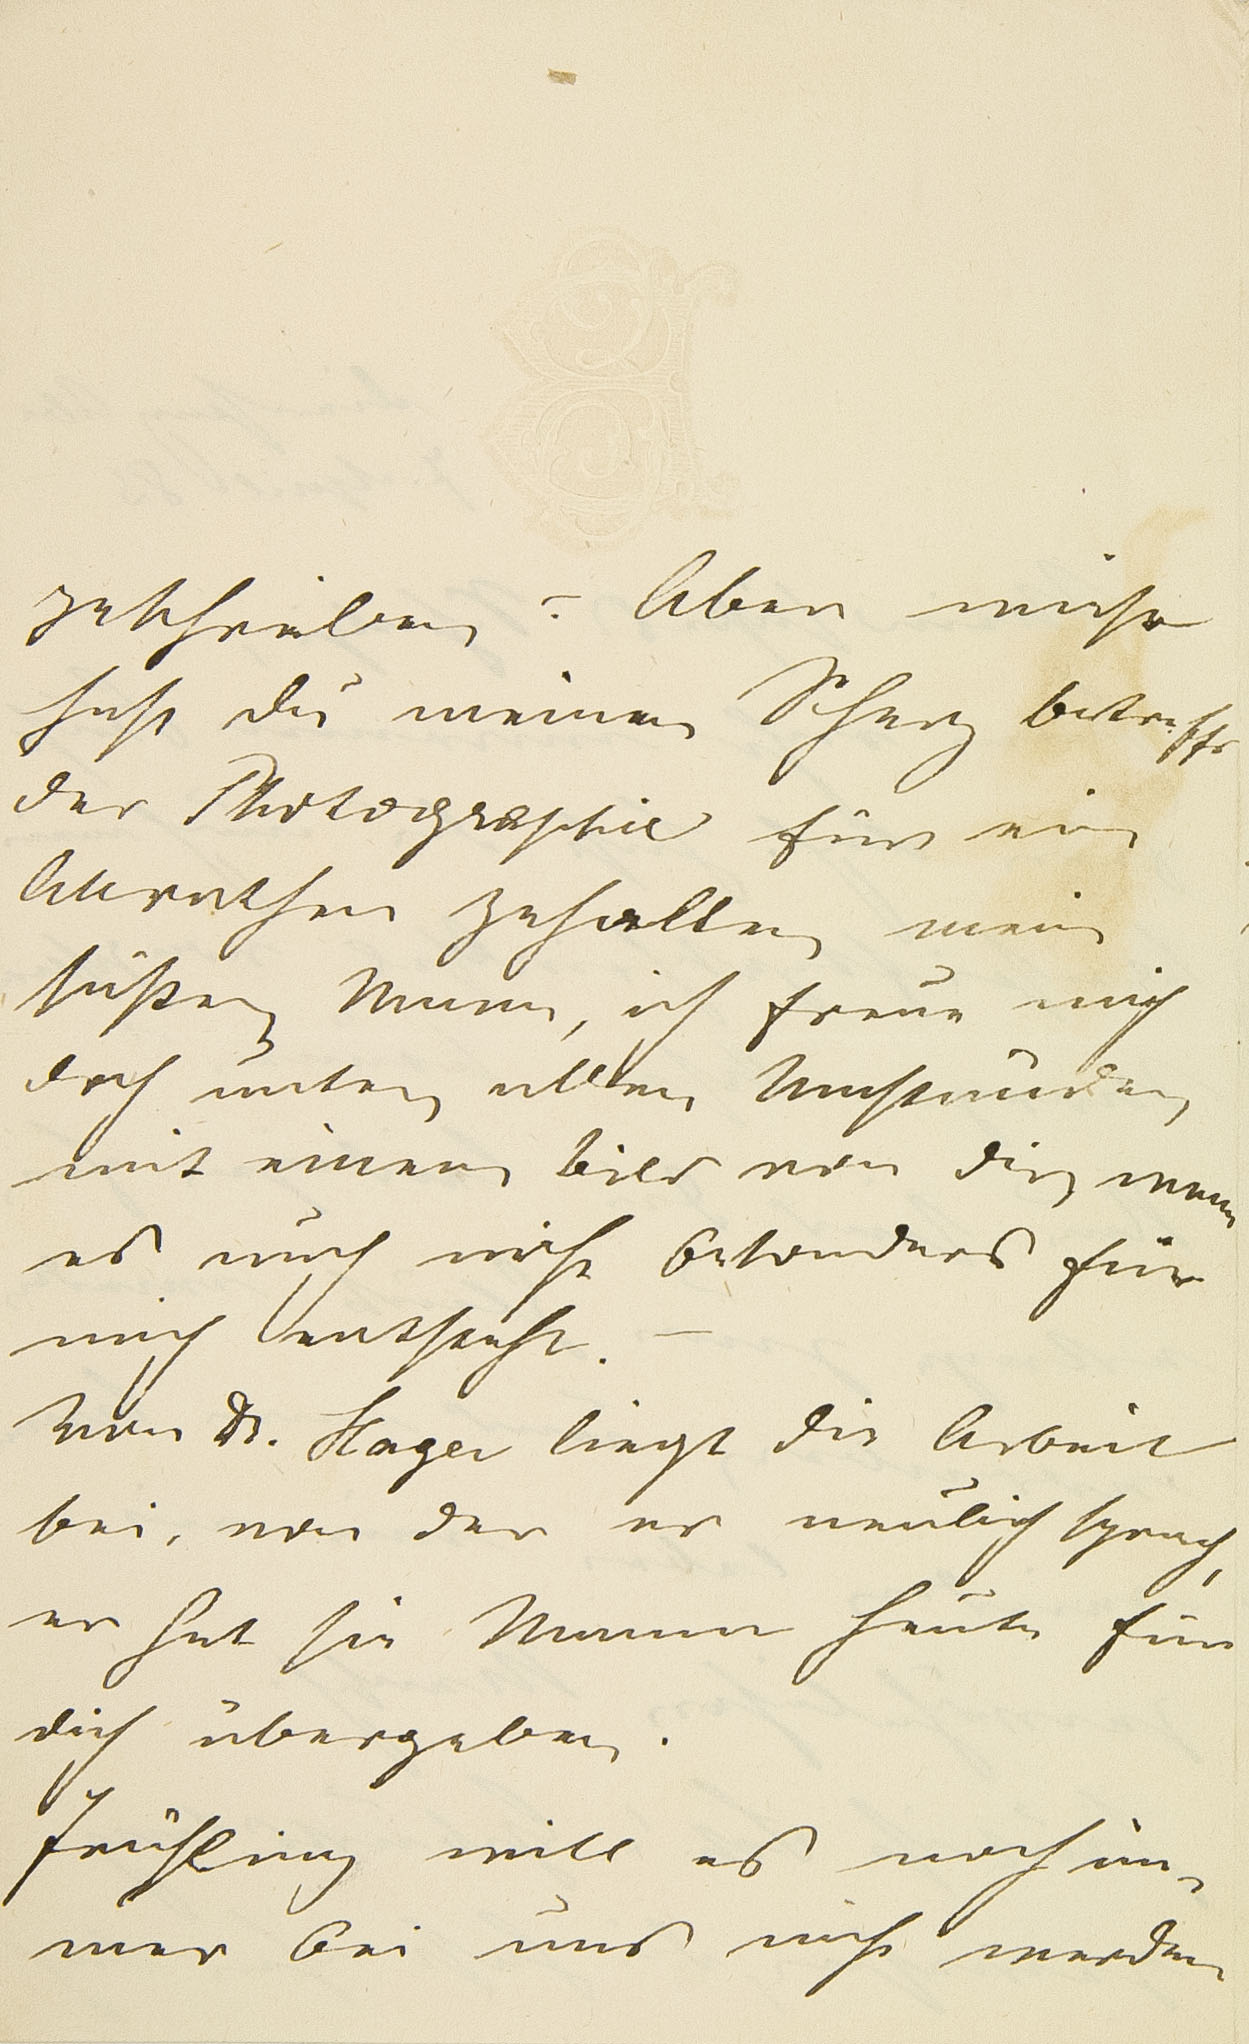 geschrieben? Aber nicht
hast du meinen Scherz betreffs
der Photographie für ein
Abrathen gehalten mein
süßer Mann, ich freue mich
doch unter allen Umständen
mit einem Bild von dir, wenn
es auch nicht besonders für
mich entsteht. –
Von Dr. Hager liegt die Arbeit
bei, von der er neulich sprach,
er hat sie Mama heute für
dich übergeben.
Frühling will es noch im-
mer bei uns nicht werden